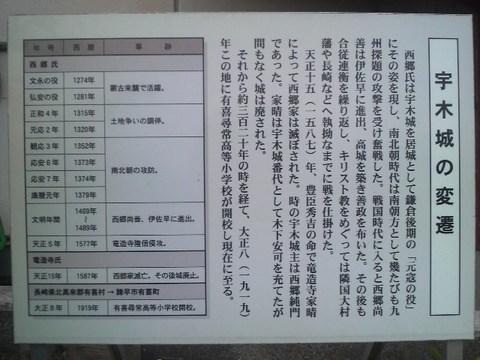 宇木城の変遷
西郷氏は宇木城を居城として鎌倉後期の「元寇の役」
にその姿を現し、南北朝時代は南朝方として幾たびも九
州探題の攻撃を受け奮戦した。戦国時代に入ると西郷尚
善は伊佐早に進出、高城を築き善政を布いた。その後も
合従連衡を繰り返し、キリスト教をめぐっては隣国大村
藩や長崎などへ執拗なまでに戦を仕掛けた。
天正十五（一五八七）年、豊臣秀吉の命で竜造寺家晴
によって西郷家は滅ぼされた。時の宇木城主は西郷純門
であった。家晴は宇木城番代として木下安可を充てたが
間もなく城は廃された。
それから約三百二十年の時を経て、大正八（一九一九）
年この地に有喜尋常高等小学校が開校し現在に至る。
年号 西暦 事跡
西郷氏
文永の役 1274年 蒙古来襲で活躍。
弘安の役 1281年
正和4年 1315年 土地争いの調停。
元応2年 1320年
観応3年 1352年 南北朝の攻防。
応安6年 1373年
応安7年 1374年
康暦元年 1379年
文明年間 1469年～1489年 西郷尚善、伊佐早に進出。
天正5年 1577年 竜造寺隆信侵攻。
竜造寺氏
天正15年 1587年 西郷家滅亡。その後城廃止。
長崎県北高来郡有喜村 → 諫早市有喜町
大正8年 1919年 有喜尋常高等小学校開校。